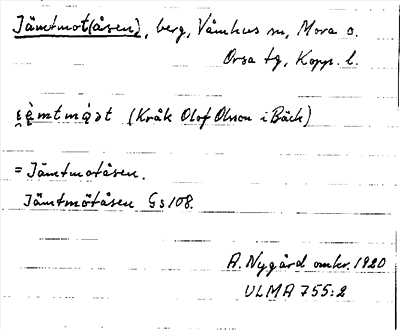 Jämtmot(åsen), berg, Våmhus sn, Mora o.
Orsa tg, Kopp. l.
(Kråk Olof Olsson i Bäck)
= Jämtmotåsen.
Jämtmötåsen Gs 108.
A. Nygård omkr. 1920
ULMA 755:2